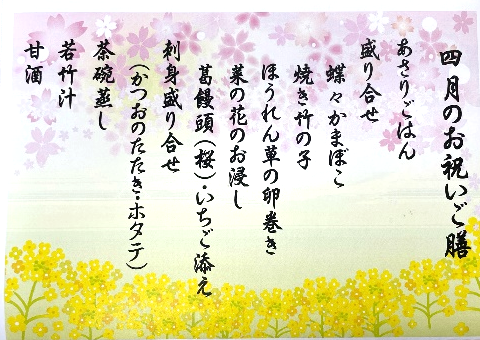 四月のお祝いご膳
あさりごはん
盛り合せ
蝶々かまぼこ
焼き竹の子
ほうれん草の卵巻き
菜の花のお浸し
葛饅頭(桜)・いちご添え
刺身盛り合せ
(かつおのたたき・ホタテ)
茶碗蒸し
若竹汁
甘酒